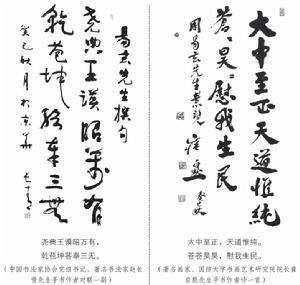 大中至正天道惟纯
苍〻昊〻慰我生民
大中至正，天道惟纯。
苍苍昊昊，慰我生民。
（著名画家、国防大学书画艺术研究院院长崔
自默先生手书作者诗一首）
易玄先生撰句
尧典王谟昭万有
乾苞坤络奉三无
癸巳秋月于京华
尧典王谟昭万有，
乾苞坤荅奉三无。
（中国书法家协会党组书记、著名书法家赵长
青先生手书作者对联一副）